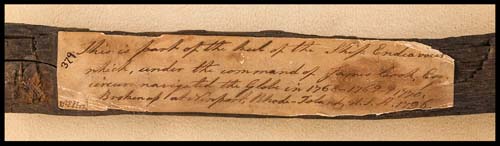 379
This is part of the keel of the Ship Endeavour
which, under the command of James Cook, Cir
cumnavigated the Globe in 1768. 1769 & 1770,
Broken up at Newport, Rhode-Island, U.S.A. 1796